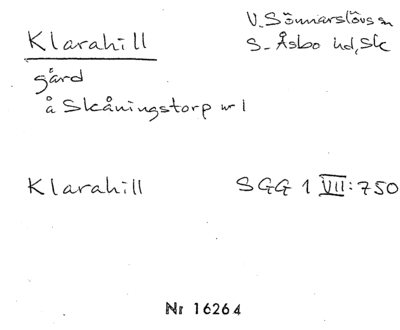 Klarahill
V. Sönnarslövs sn
S. Åsbo hd, Sk
gård
å Skåningstorp nr 1
Klarahill
SGG 1 VII:750
Nr 16264